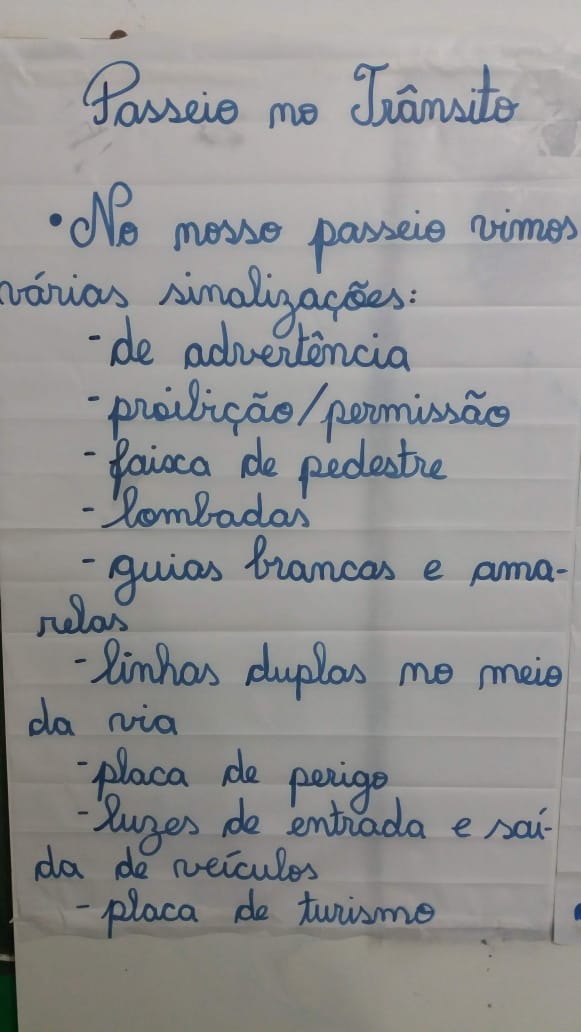 Passeio no Trânsito
• No nosso passeio vimos
várias sinalizações:
- de advertência
- proibição/permissão
- faixa de pedestre
- lombadas
- guias brancas e ama-
relas
- linhas duplas no meio
da via
- placa de perigo
- luzes de entrada e saí-
da de veículos
- placa de turismo